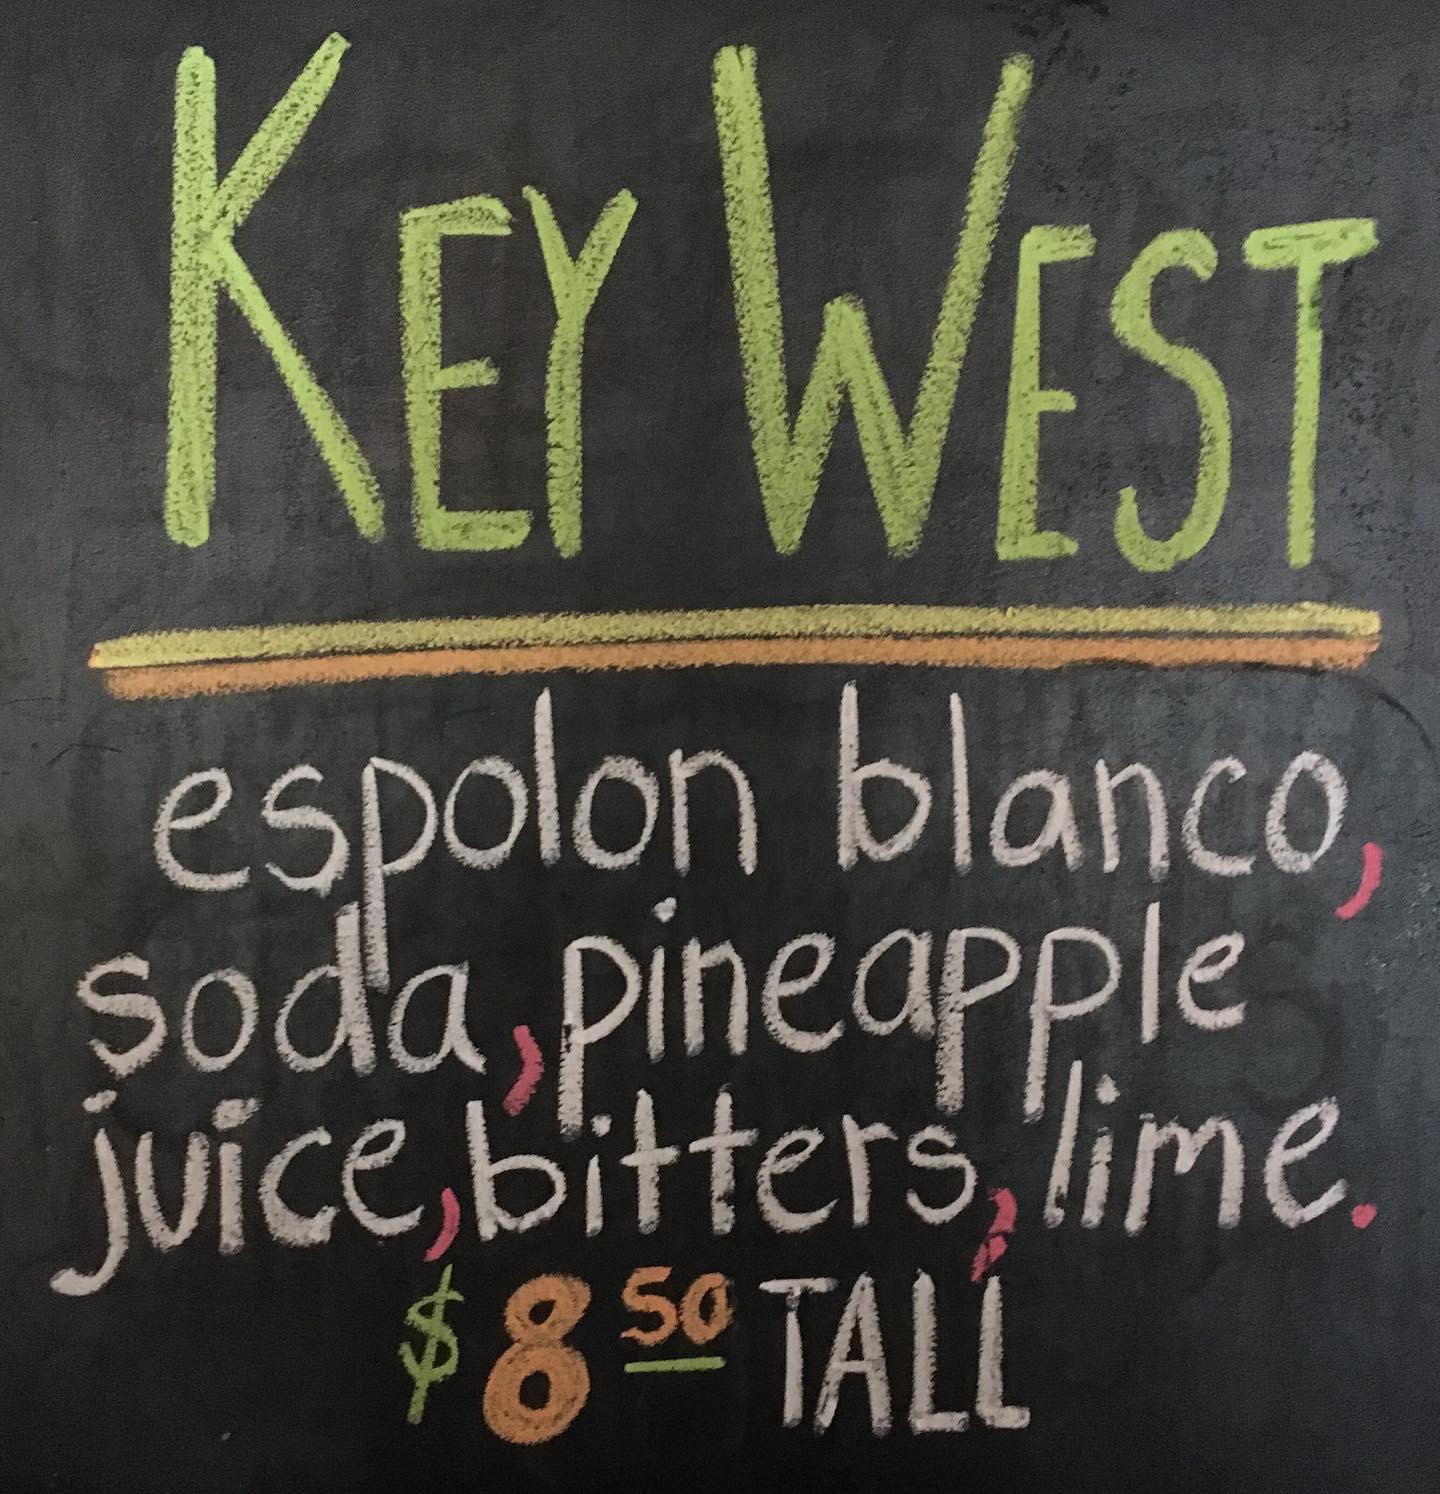 KEY WEST
espolon blanco,
soda, pineapple
juice, bitters, lime.
$8 50 TALL